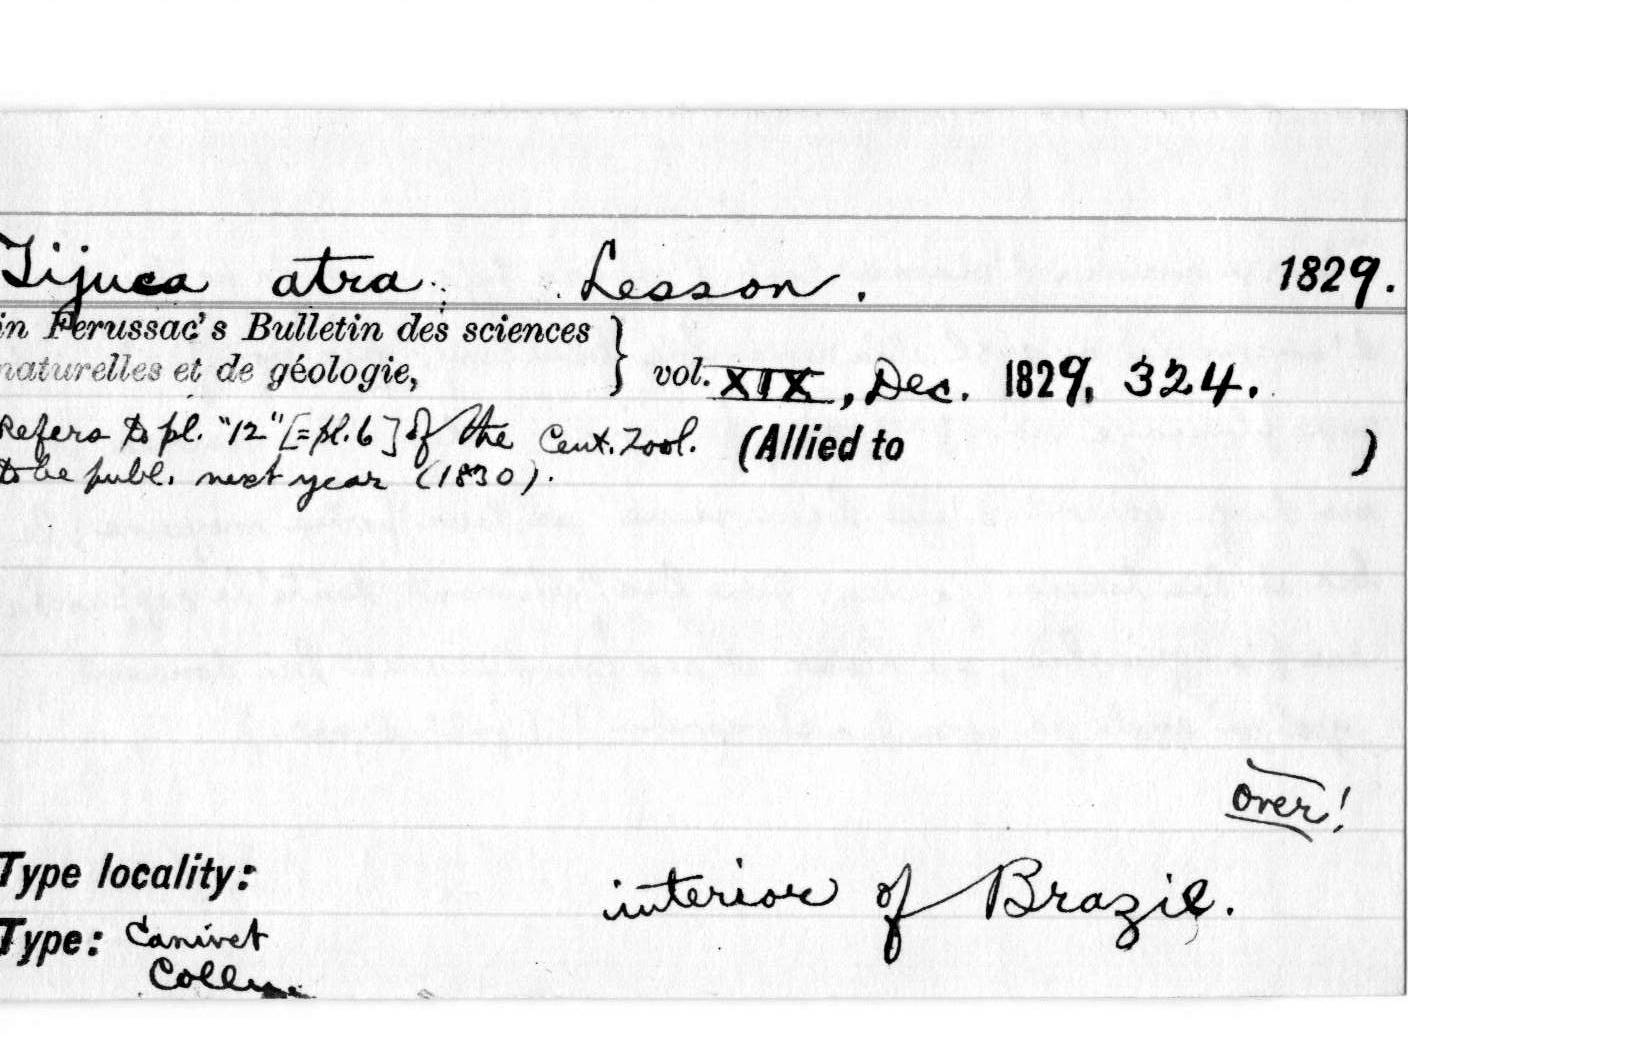 Tijuca atra Lesson. 1829.
in Ferussac's Bulletin des sciences
naturelles et de géologie, } vol. XIX, Dec. 1829, 324.
Refers to pl. "12" [= pl. 6] of the Cent. Zool. (Allied to )
to be publ. next year (1830).
over!
Type locality:
interior of Brazil.
Type: Canivet
Colln.